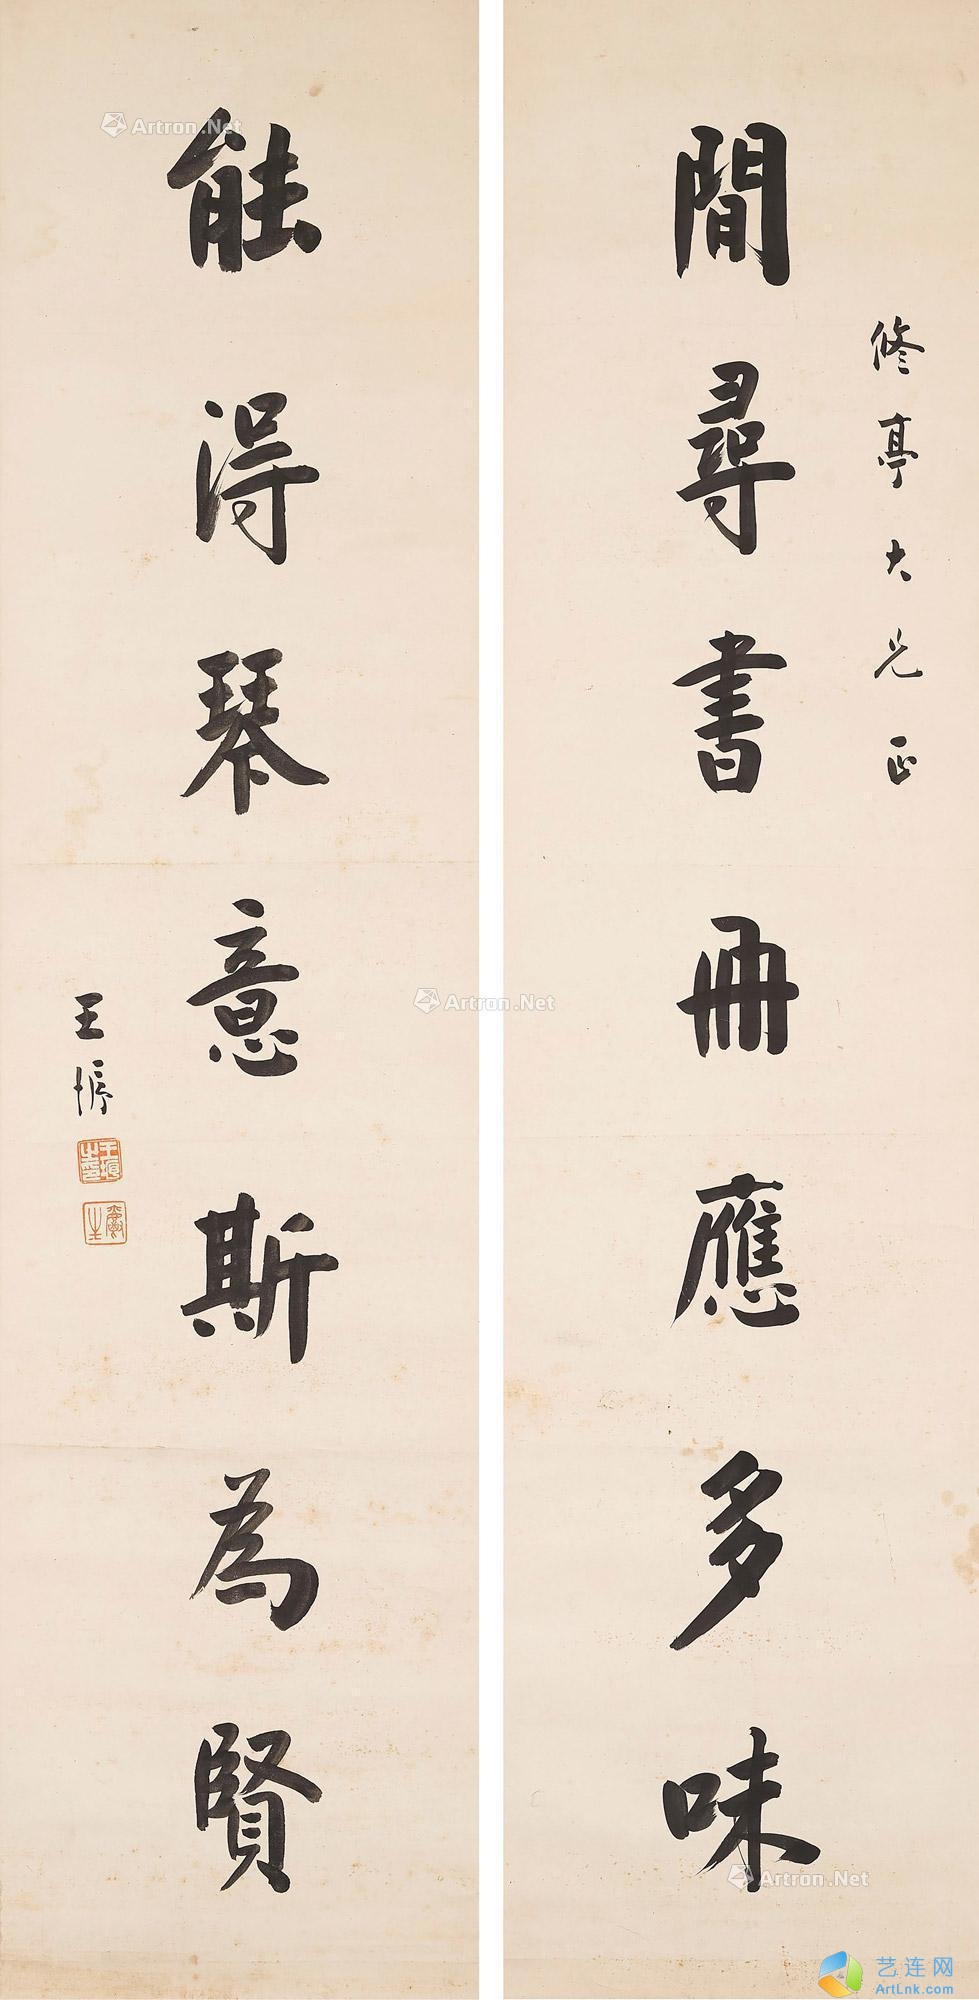 閒尋書冊應多味
修亭大兄正
能得琴意斯為賢
王
Artron.Net
Artron.Net
Artron.Net
艺连网
ArtLnk.com